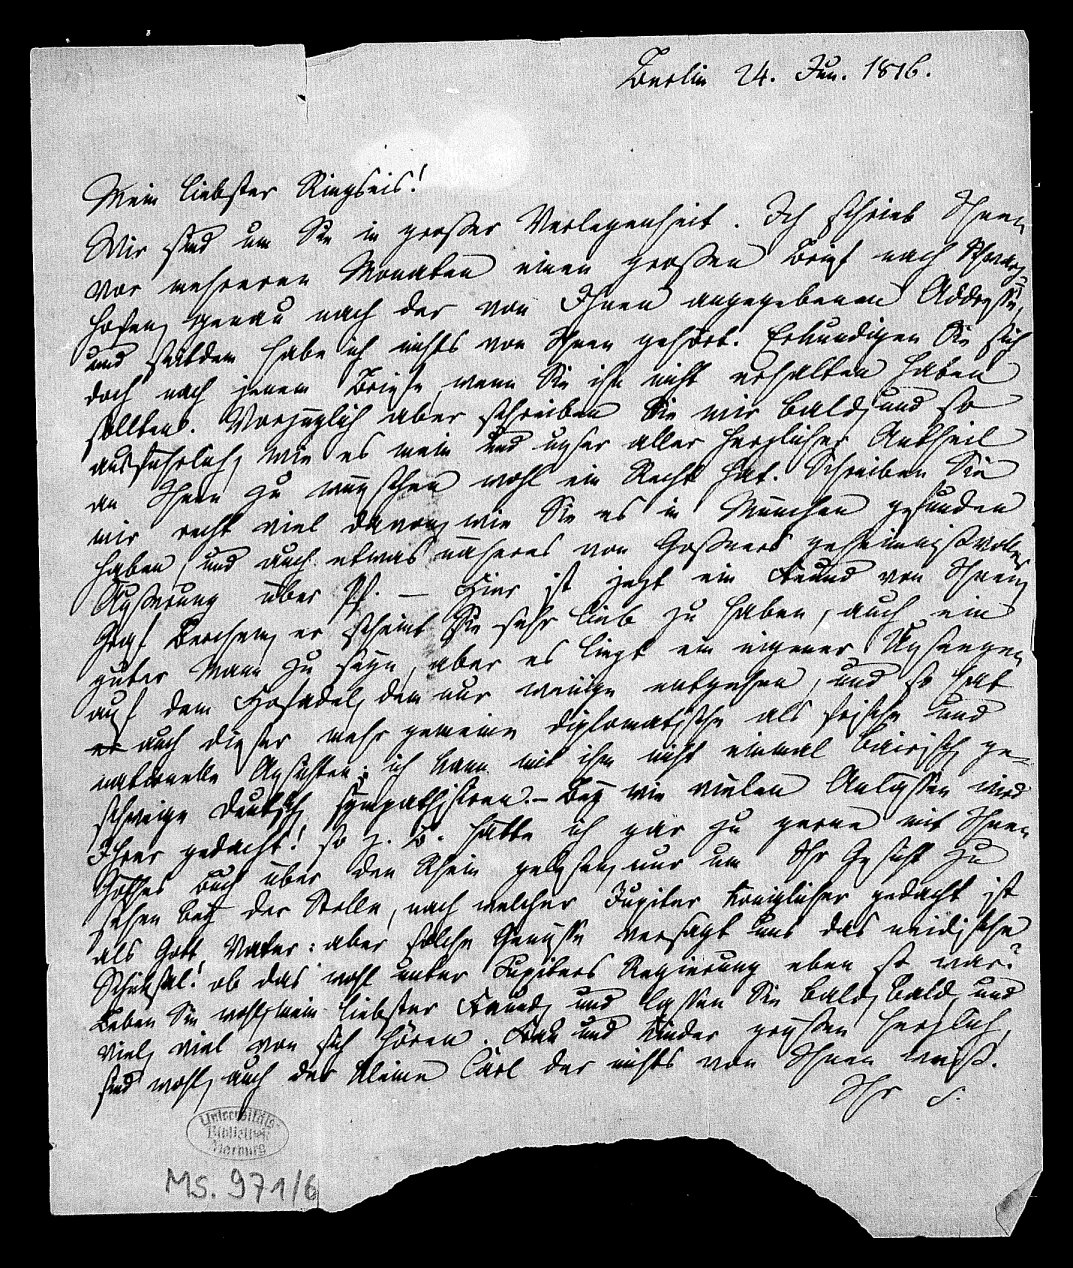 Berlin 24. Jun. 1816.
Mein liebster Ringseis!
Wir sind um Sie in großer Verlegenheit. Ich schrieb Ihnen
vor mehreren Monaten einen großen Brief nach Schwarz-
hofen, genau nach der von Ihnen angegebenen Addresse,
und seitdem habe ich nichts von Ihnen gehört. Erkundigen Sie sich
doch nach jenem Briefe, wenn Sie ihn nicht erhalten haben
sollten. Vorzüglich aber schreiben Sie mir bald, und so
ausführlich, wie es mein und unser aller herzlicher Antheil
an Ihnen zu wünschen wohl ein Recht hat. Schreiben Sie
mir recht viel davon, wie Sie es in München gefunden
haben, und auch etwas näheres von Goßners geheimnißvoller
Äußerung über Pf. — Hier ist jetzt ein Freund von Ihnen,
Graf Berchem, er scheint Sie sehr lieb zu haben, auch ein
guter Mann zu seyn, aber es liegt ein eigener Unseegen
auf dem Hofadel, dem nur wenige entgehen, und so hat
auch dieser mehr gemeine diplomatische als frische und
nationelle Ansichten: ich kann mit ihm nicht einmal bairisch, ge-
schweige deutsch sympathisiren. – Bey wie vielen Anlässen wird
Ihrer gedacht! so z. B. hätte ich gar zu gerne mit Ihnen
Göthes Buch über den Rhein gelesen, nur um Ihr Gesicht zu
sehen bey der Stelle, nach welcher Jupiter königlicher gedacht ist
als Gott Vater: aber solche Genüsse versagt uns das neidische
Schicksal! ob das wohl unter Jupiters Regierung eben so war?
Leben Sie wohl, mein liebster Freund, und lassen Sie bald, bald, und
viel, viel von sich hören. Frau und Kinder grüßen herzlich,
sind wohl, auch der kleine Carl der nichts von Ihnen weiß.
Ihr S.
Universitäts-
Bibliothek
Marburg
Ms. 971/6